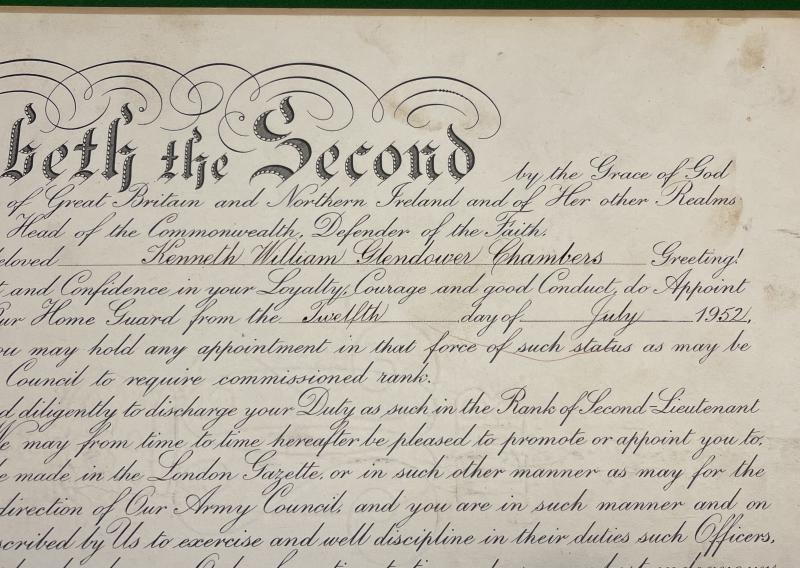 beth the Second by the Grace of God
of Great Britain and Northern Ireland and of Her other Realms
Head of the Commonwealth, Defender of the Faith.
eloved Kenneth William Glendower Chambers Greeting!
t and Confidence in your Loyalty, Courage and good Conduct, do Appoint
Our Home Guard from the Twelfth day of July 1952,
ou may hold any appointment in that force of such status as may be
Council to require commissioned rank.
d diligently to discharge your Duty as such in the Rank of Second-Lieutenant
We may from time to time hereafter be pleased to promote or appoint you to,
e made in the London Gazette, or in such other manner as may for the
direction of Our Army Council, and you are in such manner and on
scribed by Us to exercise and well discipline in their duties such Officers,